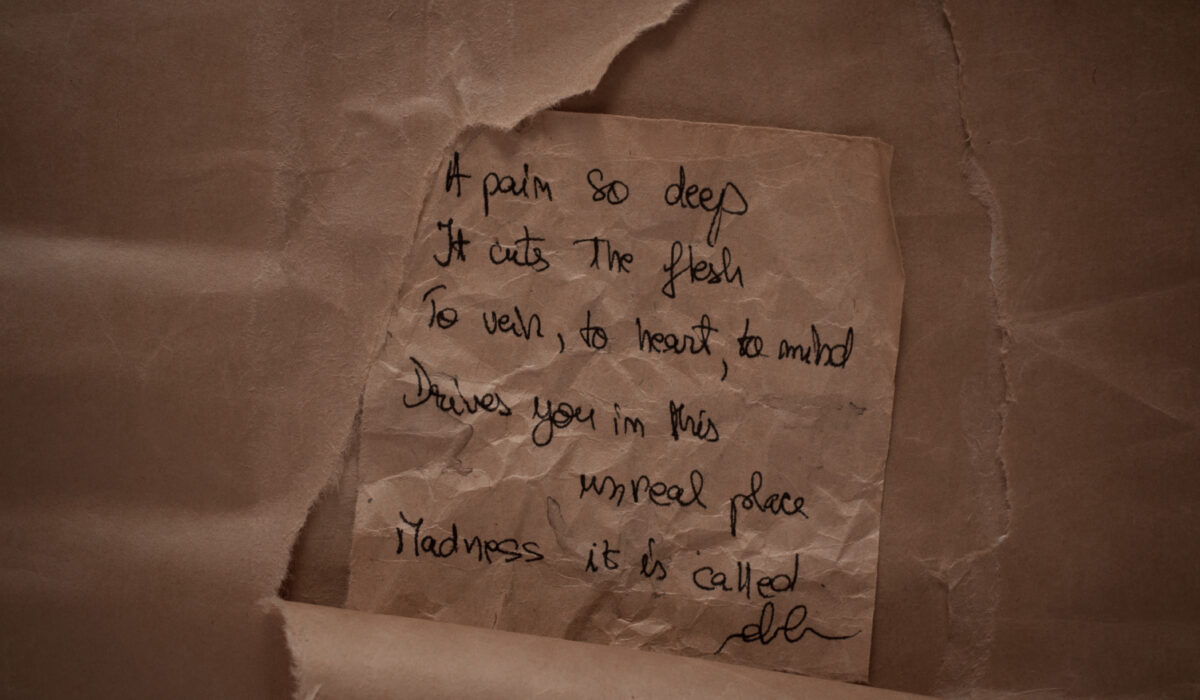 A pain so deep
It cuts The flesh
To vein, to heart, to mind
Drives you in this
unreal place
Madness it is called.